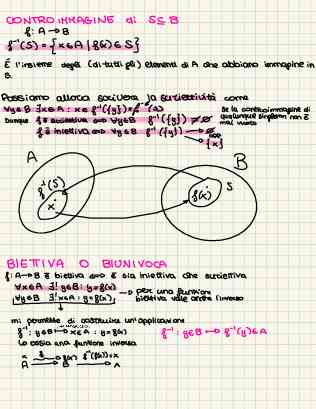 CONTROIMMAGINE di S⊆B
f: A→B
f⁻¹(S) = {x∈A | f(x)∈S}
È l'insieme degli (di tutti gli) elementi di A che abbiano immagine in
S.
Possiamo allora scrivere la suriettività come
∀y∈B ∃x∈A : x∈ f⁻¹({y})
Se la controimmagine di
qualunque singleton non è
mai vuota
Dunque f è suriettiva ⟺ ∀y∈B f⁻¹({y}) ≠ ∅
f è iniettiva ⟺ ∀y∈B f⁻¹({y}) → ∅
{x}
A
B
f⁻¹(S)
x
f(x)
S
BIETTIVA O BIUNIVOCA
f: A→B è biettiva ⟺ è sia iniettiva che suriettiva
∀x∈A ∃! y∈B : y=f(x)
∀y∈B ∃! x∈A : y=f(x)
→ per una funzione
biettiva vale anche l'inverso
mi permette di costruire un'applicazione
f⁻¹: y∈B ↦ x∈A : y=f(x)
f⁻¹: y∈B ↦ f⁻¹(y)∈A
Lo ossia una funzione inversa
x f f(x) f⁻¹(f(x))=x
A → B → A